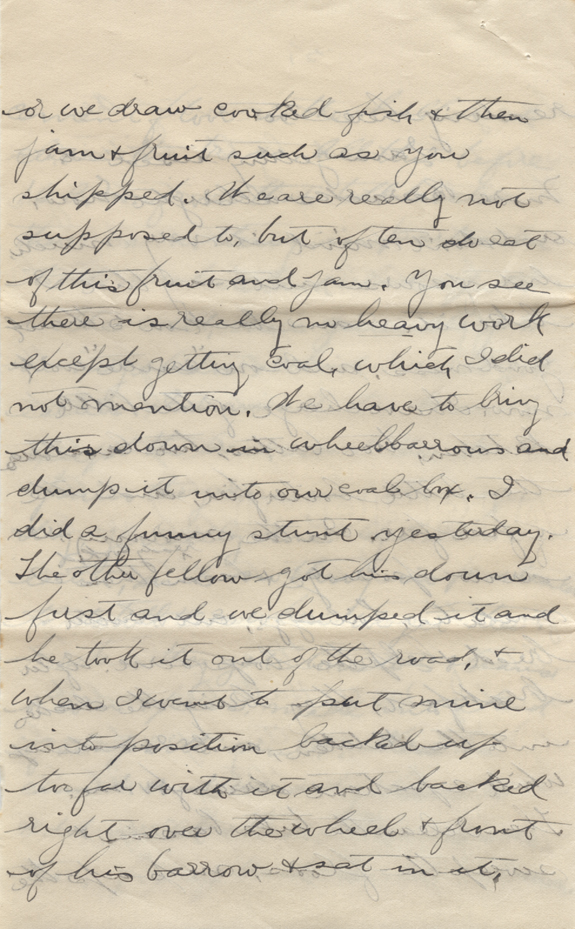 or we draw cooked fish & then
jam & fruit such as you
shipped. We are really not
supposed to, but often do eat
of this fruit and jam. You see
there is really no heavy work
except getting coal, which I did
not mention. We have to bring
this down in wheelbbarrows and
dump it into our coal box. I
did a funny stunt yesterday.
The other fellow got his down
first and we dumped it and
he took it out of the road, &
when I went to put mine
into position backed up
too far with it and backed
right over the wheel & front
of his barrow & sat in it,